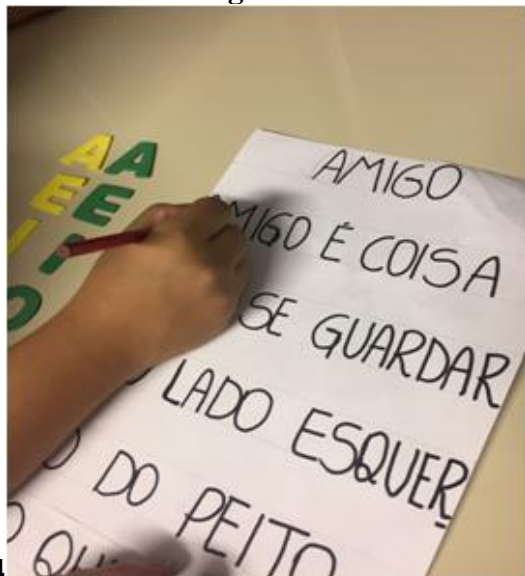 A A
E E
I I
O
AMIGO
MIGO É COISA
SE GUARDAR
LADO ESQUER
DO PEITO